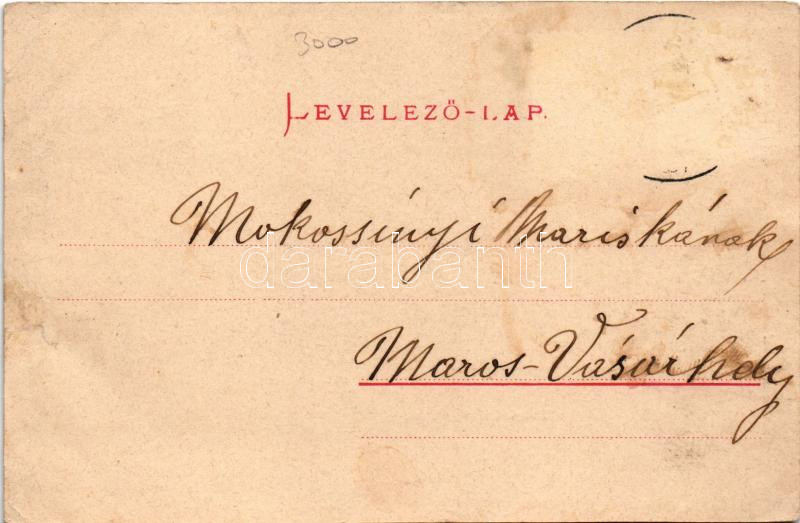 3000
LEVELEZŐ-LAP.
Mokossinyi Mariskának
darabanth
Maros-Vásárhely